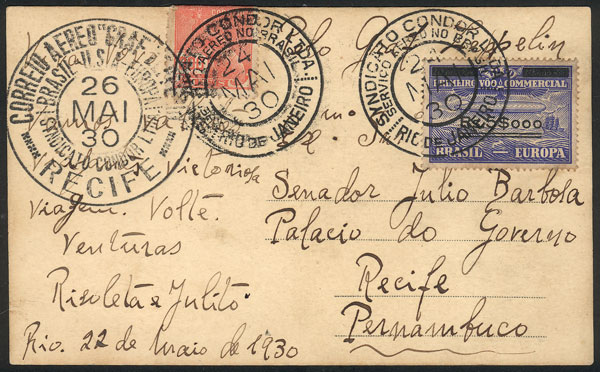 Zeppelin
CORREIO AEREO "GRAF ZEPPELIN"
BRASIL
SYNDICATO CONDOR LTDA
26
MAI
30
RECIFE
SYNDICATO CONDOR LTDA
SERVIÇO AEREO NO BRASIL
24
MAI
30
RIO DE JANEIRO
SYNDICATO CONDOR LTDA
SERVIÇO AEREO NO BRASIL
24
MAI
30
RIO DE JANEIRO
PRIMEIRO VOO COMMERCIAL
$000
BRASIL EUROPA
Victoriosa
Viagem. Volte.
Venturas
Risoleta e Julito
Rio. 22 de Maio de 1930
Senador Julio Barbosa
Palacio do Governo
Recife
Pernambuco